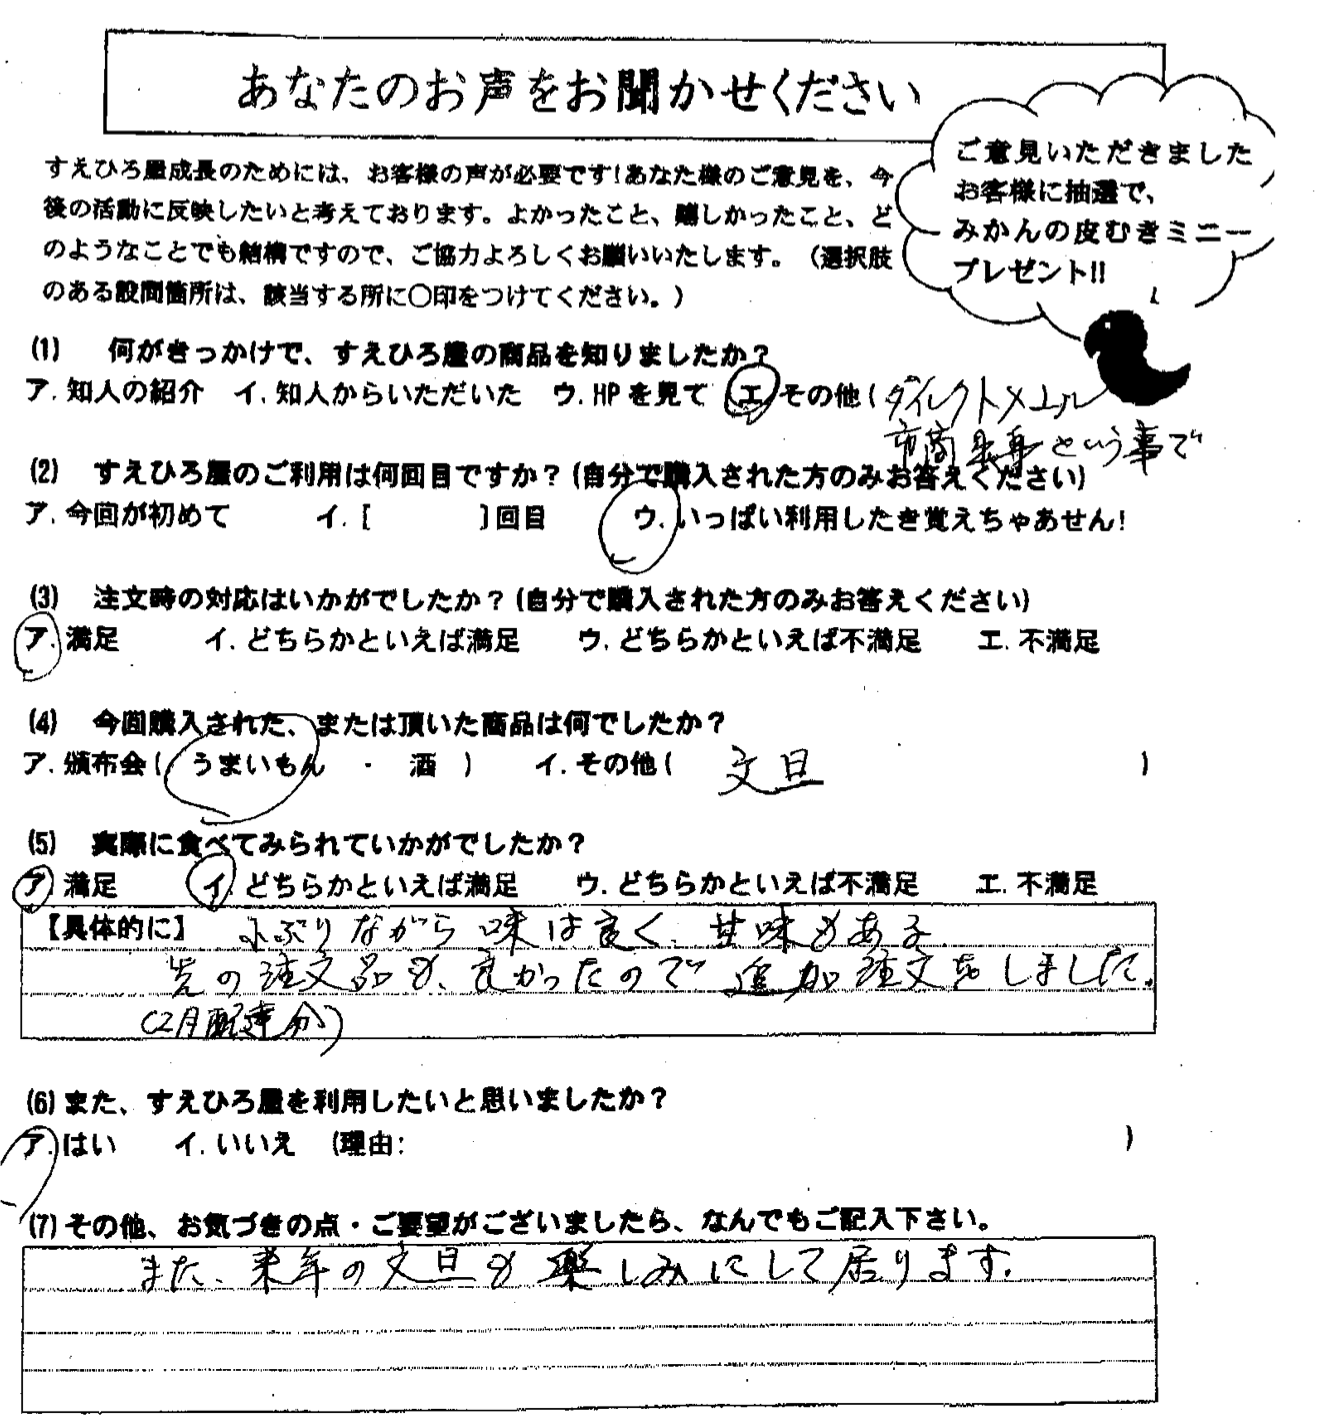 あなたのお声をお聞かせください
すえひろ屋成長のためには、お客様の声が必要です!あなた様のご意見を、今
後の活動に反映したいと考えております。よかったこと、嬉しかったこと、ど
のようなことでも結構ですので、ご協力よろしくお願いいたします。（選択肢
のある設問箇所は、該当する所に〇印をつけてください。）
ご意見いただきました
お客様に抽選で、
みかんの皮むきミニー
プレゼント!!
(1) 何がきっかけで、すえひろ屋の商品を知りましたか？
ア. 知人の紹介 イ. 知人からいただいた ウ. HPを見て エ. その他( ダイレクトメール
市商 という事で
(2) すえひろ屋のご利用は何回目ですか？(自分で購入された方のみお答えください)
ア. 今回が初めて イ. [ ]回目 ウ. いっぱい利用したき覚えちゃあせん!
(3) 注文時の対応はいかがでしたか？(自分で購入された方のみお答えください)
ア. 満足 イ. どちらかといえば満足 ウ. どちらかといえば不満足 エ. 不満足
(4) 今回購入された、または頂いた商品は何でしたか？
ア. 頒布会( うまいもん ・ 酒 ) イ. その他( 文旦 )
(5) 実際に食べてみられていかがでしたか？
ア. 満足 イ. どちらかといえば満足 ウ. どちらかといえば不満足 エ. 不満足
【具体的に】 小ぶりながら味は良く、甘味もある
先の注文品も、良かったので追加注文をしました。
(2月配達分)
(6)また、すえひろ屋を利用したいと思いましたか？
ア. はい イ. いいえ (理由: )
(7)その他、お気づきの点・ご要望がございましたら、なんでもご記入下さい。
また、来年の文旦も楽しみにして居ります.